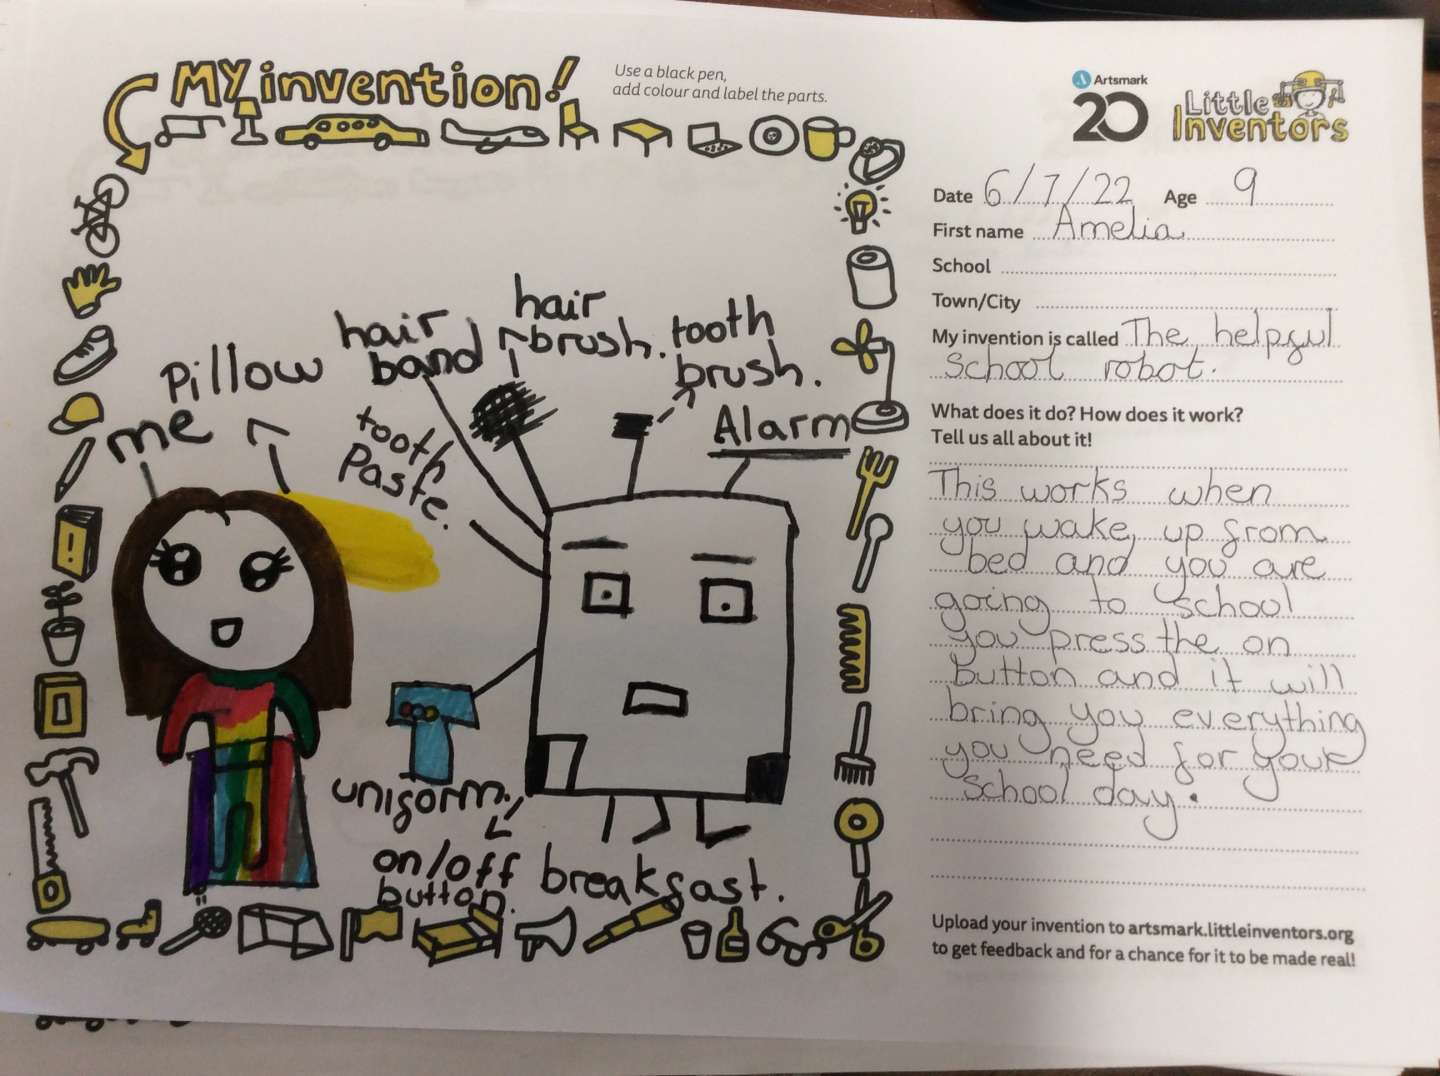 MY invention!
Use a black pen,
add colour and label the parts.
Artsmark
20
Little
Inventors
Date 6/7/22 Age 9
First name Amelia
School
Town/City
My invention is called The helpful
school robot.
What does it do? How does it work?
Tell us all about it!
This works when
you wake up from
bed and you are
going to school
you press the on
button and it will
bring you everything
you need for your
school day.
Upload your invention to artsmark.littleinventors.org
to get feedback and for a chance for it to be made real!
me
pillow
hair
band
hair
brush.
tooth
brush.
tooth
paste.
Alarm
uniform.
on/off
button.
breakfast.